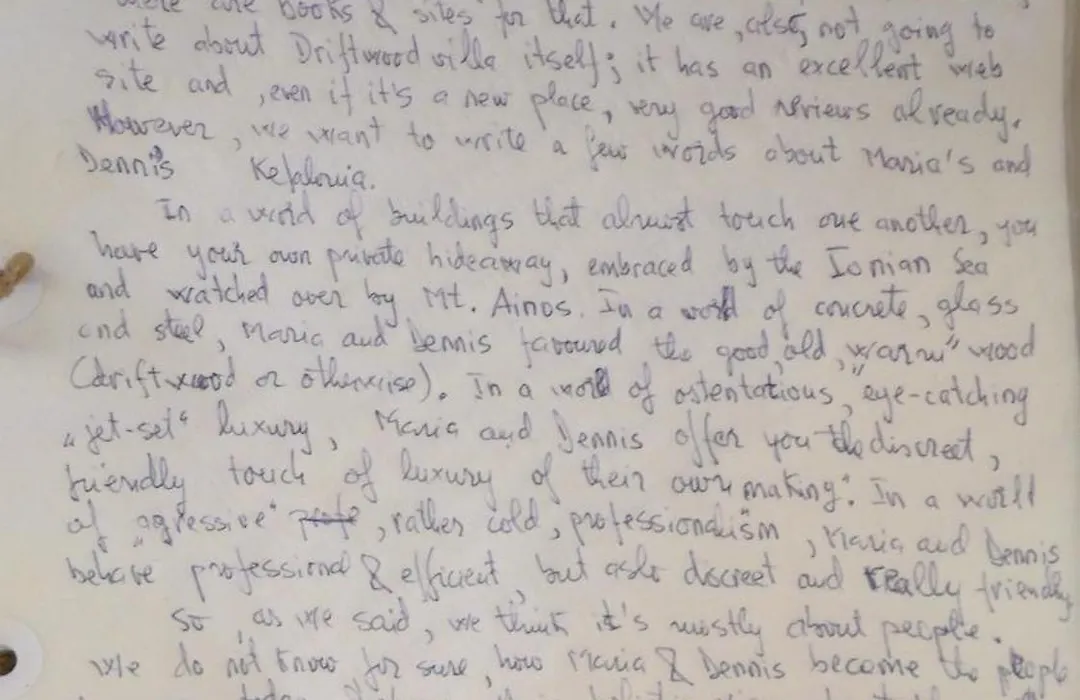 there are books & sites for that. We are, also, not going to
write about Driftwood villa itself; it has an excellent web
site and, even if it's a new place, very good reviews already.
However, we want to write a few words about Maria's and
Dennis Kefalonia.
In a world of buildings that almost touch one another, you
have your own private hideaway, embraced by the Ionian Sea
and watched over by Mt. Ainos. In a world of concrete, glass
and steel, Maria and Dennis favoured the good, old, „warm" wood
(driftwood or otherwise). In a world of ostentatious, eye-catching
„jet-set" luxury, Maria and Dennis offer you the discreet,
friendly touch of luxury of their own making. In a world
of „agressive", rather cold, professionalism, Maria and Dennis
behave professional & efficient, but also discreet and really friendly
So, as we said, we think it's mostly about people.
We do not know for sure, how Maria & Dennis become the people